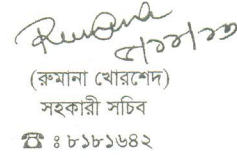 (রুমানা খোরশেদ)
সহকারী সচিব
☎ ঃ ৮১৮১৬৪২